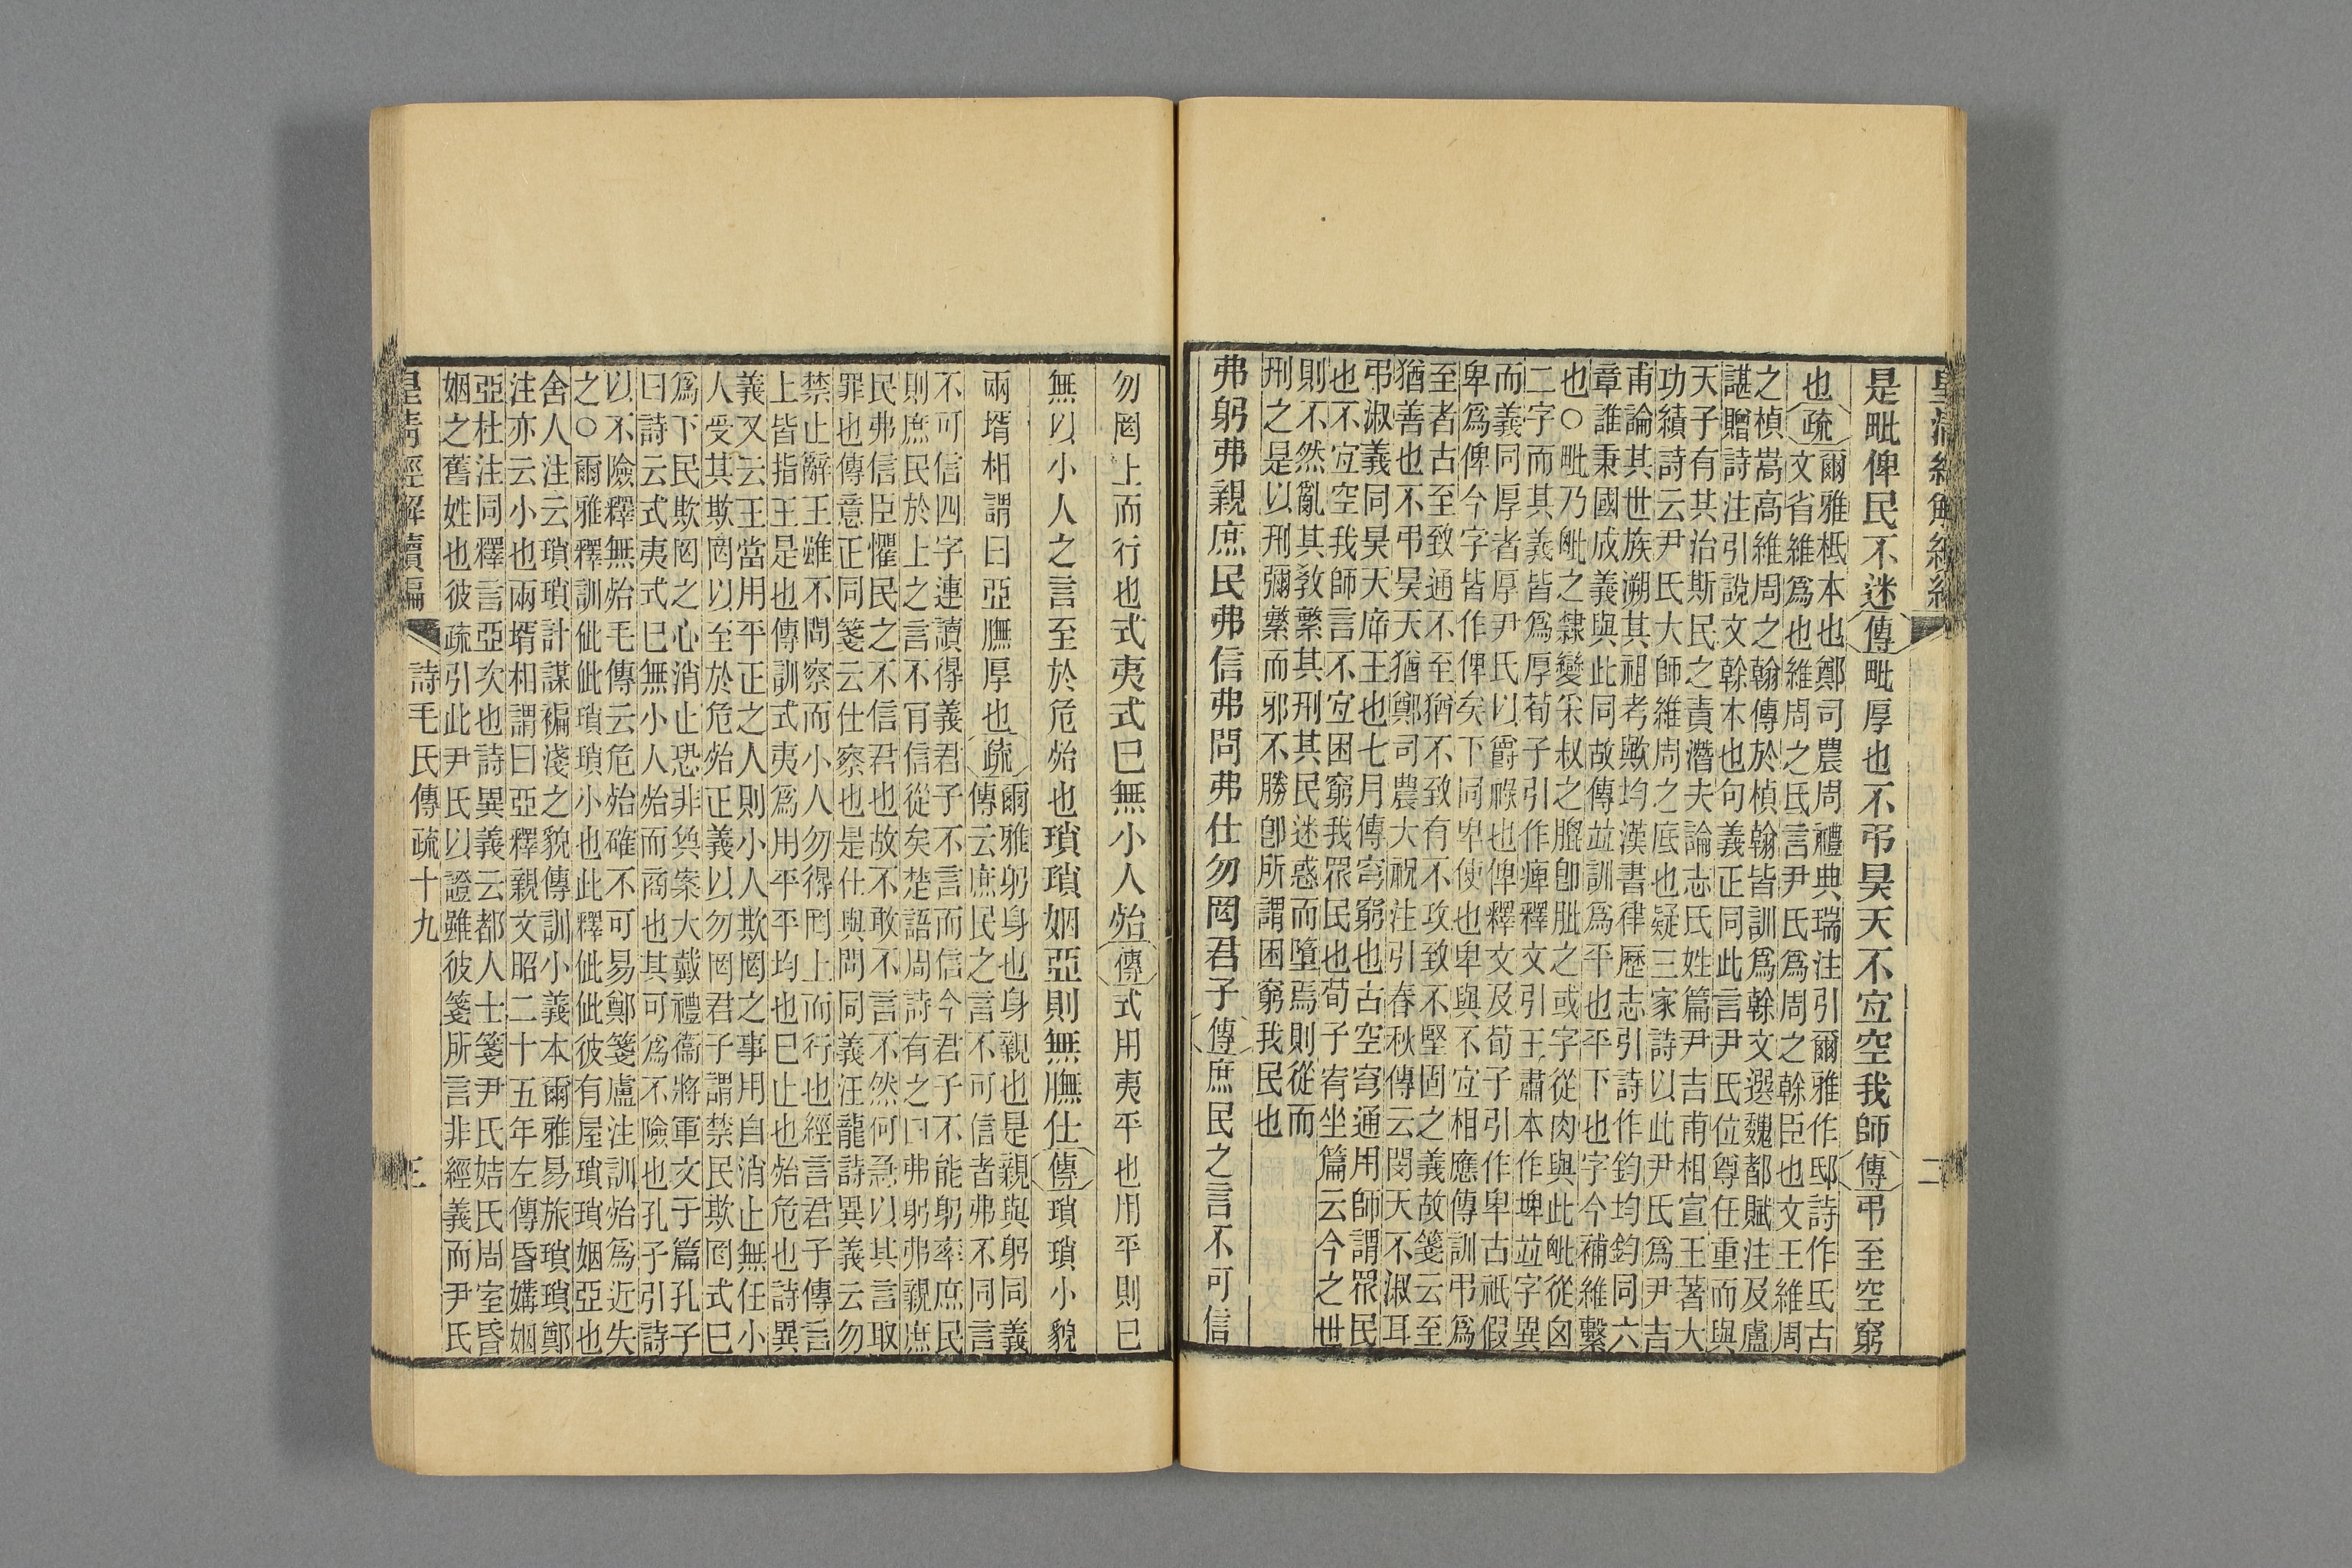 是毗俾民不迷傳毗厚也不弔昊天不宐空我師傳弔至空窮
也疏爾雅柢本也鄭司農周禮典瑞注引爾雅作邸詩作氐古
文省維爲也維周之氐言尹氏爲周之榦臣也文王維周
之楨嵩高維周之翰傳於楨翰皆訓爲榦文選魏都賦注及盧
諶贈詩注引說文榦本也句義正同此言尹氏位尊任重而與
天子有其治斯民之責潛夫論志氏姓篇尹吉甫相宣王著大
功績詩云尹氏大師維周之底也疑三家詩以此尹氏爲尹吉
甫論其世族溯其祖考歟均漢書律歷志引詩作鈞均鈞同六
章誰秉國成義與此同故傳竝訓爲平也平下也字今補維繫
也○毗乃毗之隸變采叔之膍卽肶之或字從肉與此毗從囟
二字而其義皆爲厚荀子引作痺釋文引王肅本作埤竝字異
而義同厚者厚尹氏以爵祿也俾釋文及荀子引作卑古祇假
卑爲俾今字皆作俾矣下同卑使也卑與不宐相應傳訓弔爲
至者古至致通不至猶不致有不攻致不堅固之義故箋云至
猶善也不弔昊天猶鄭司農大祝注引春秋傳云閔天不淑耳
弔淑義同昊天席王也七月傳穹窮也古空穹通用師謂眾民
也不宐空我師言不宐困窮我眾民也荀子宥坐篇云今之世
則不然亂其敎繁其刑其民迷惑而墮焉則從而
刑之是以刑彌繁而邪不勝卽所謂困窮我民也
弗躬弗親庶民弗信弗問弗仕勿罔君子傳庶民之言不可信
二
勿罔上而行也式夷式已無小人殆傳式用夷平也用平則已
無以小人之言至於危殆也瑣瑣姻亞則無膴仕傳瑣瑣小貌
兩壻相謂曰亞膴厚也疏爾雅躬身也身親也是親與躬同義
傳云庶民之言不可信者弗不同言
不可信四字連讀得義君子不言而信今君子不能躬率庶民
則庶民於上之言不肎信從矣楚語周詩有之曰弗躬弗親庶
民弗信臣懼民之不信君也故不敢不言不然何急以其言取
罪也傳意正同箋云仕察也是仕與問同義汪龍詩異義云勿
禁止辭王雖不問察而小人勿得罔上而行也經言君子傳言
上皆指王是也傳訓式夷爲用平平均也已止也殆危也詩異
義又云王當用平正之人則小人欺罔之事用自消止無任小
人受其欺罔以至於危殆正義以勿罔君子謂禁民欺罔式已
爲下民欺罔之心消止恐非與案大戴禮衞將軍文子篇孔子
曰詩云式夷式已無小人殆而商也其可爲不險也孔子引詩
以不險釋無殆毛傳云危殆確不可易鄭箋盧注訓殆爲近失
之○爾雅釋訓佌佌瑣瑣小也此釋佌佌彼有屋瑣瑣姻亞也
舍人注云瑣瑣計謀褊淺之貌傳訓小義本爾雅易旅瑣瑣鄭
注亦云小也兩壻相謂曰亞釋親文昭二十五年左傳昏媾姻
亞杜注同釋言亞次也詩異義云都人士箋尹氏姞氏周室昏
姻之舊姓也彼疏引此尹氏以證雖彼箋所言非經義而尹氏
皇淸經解續編 詩毛氏傳疏十九